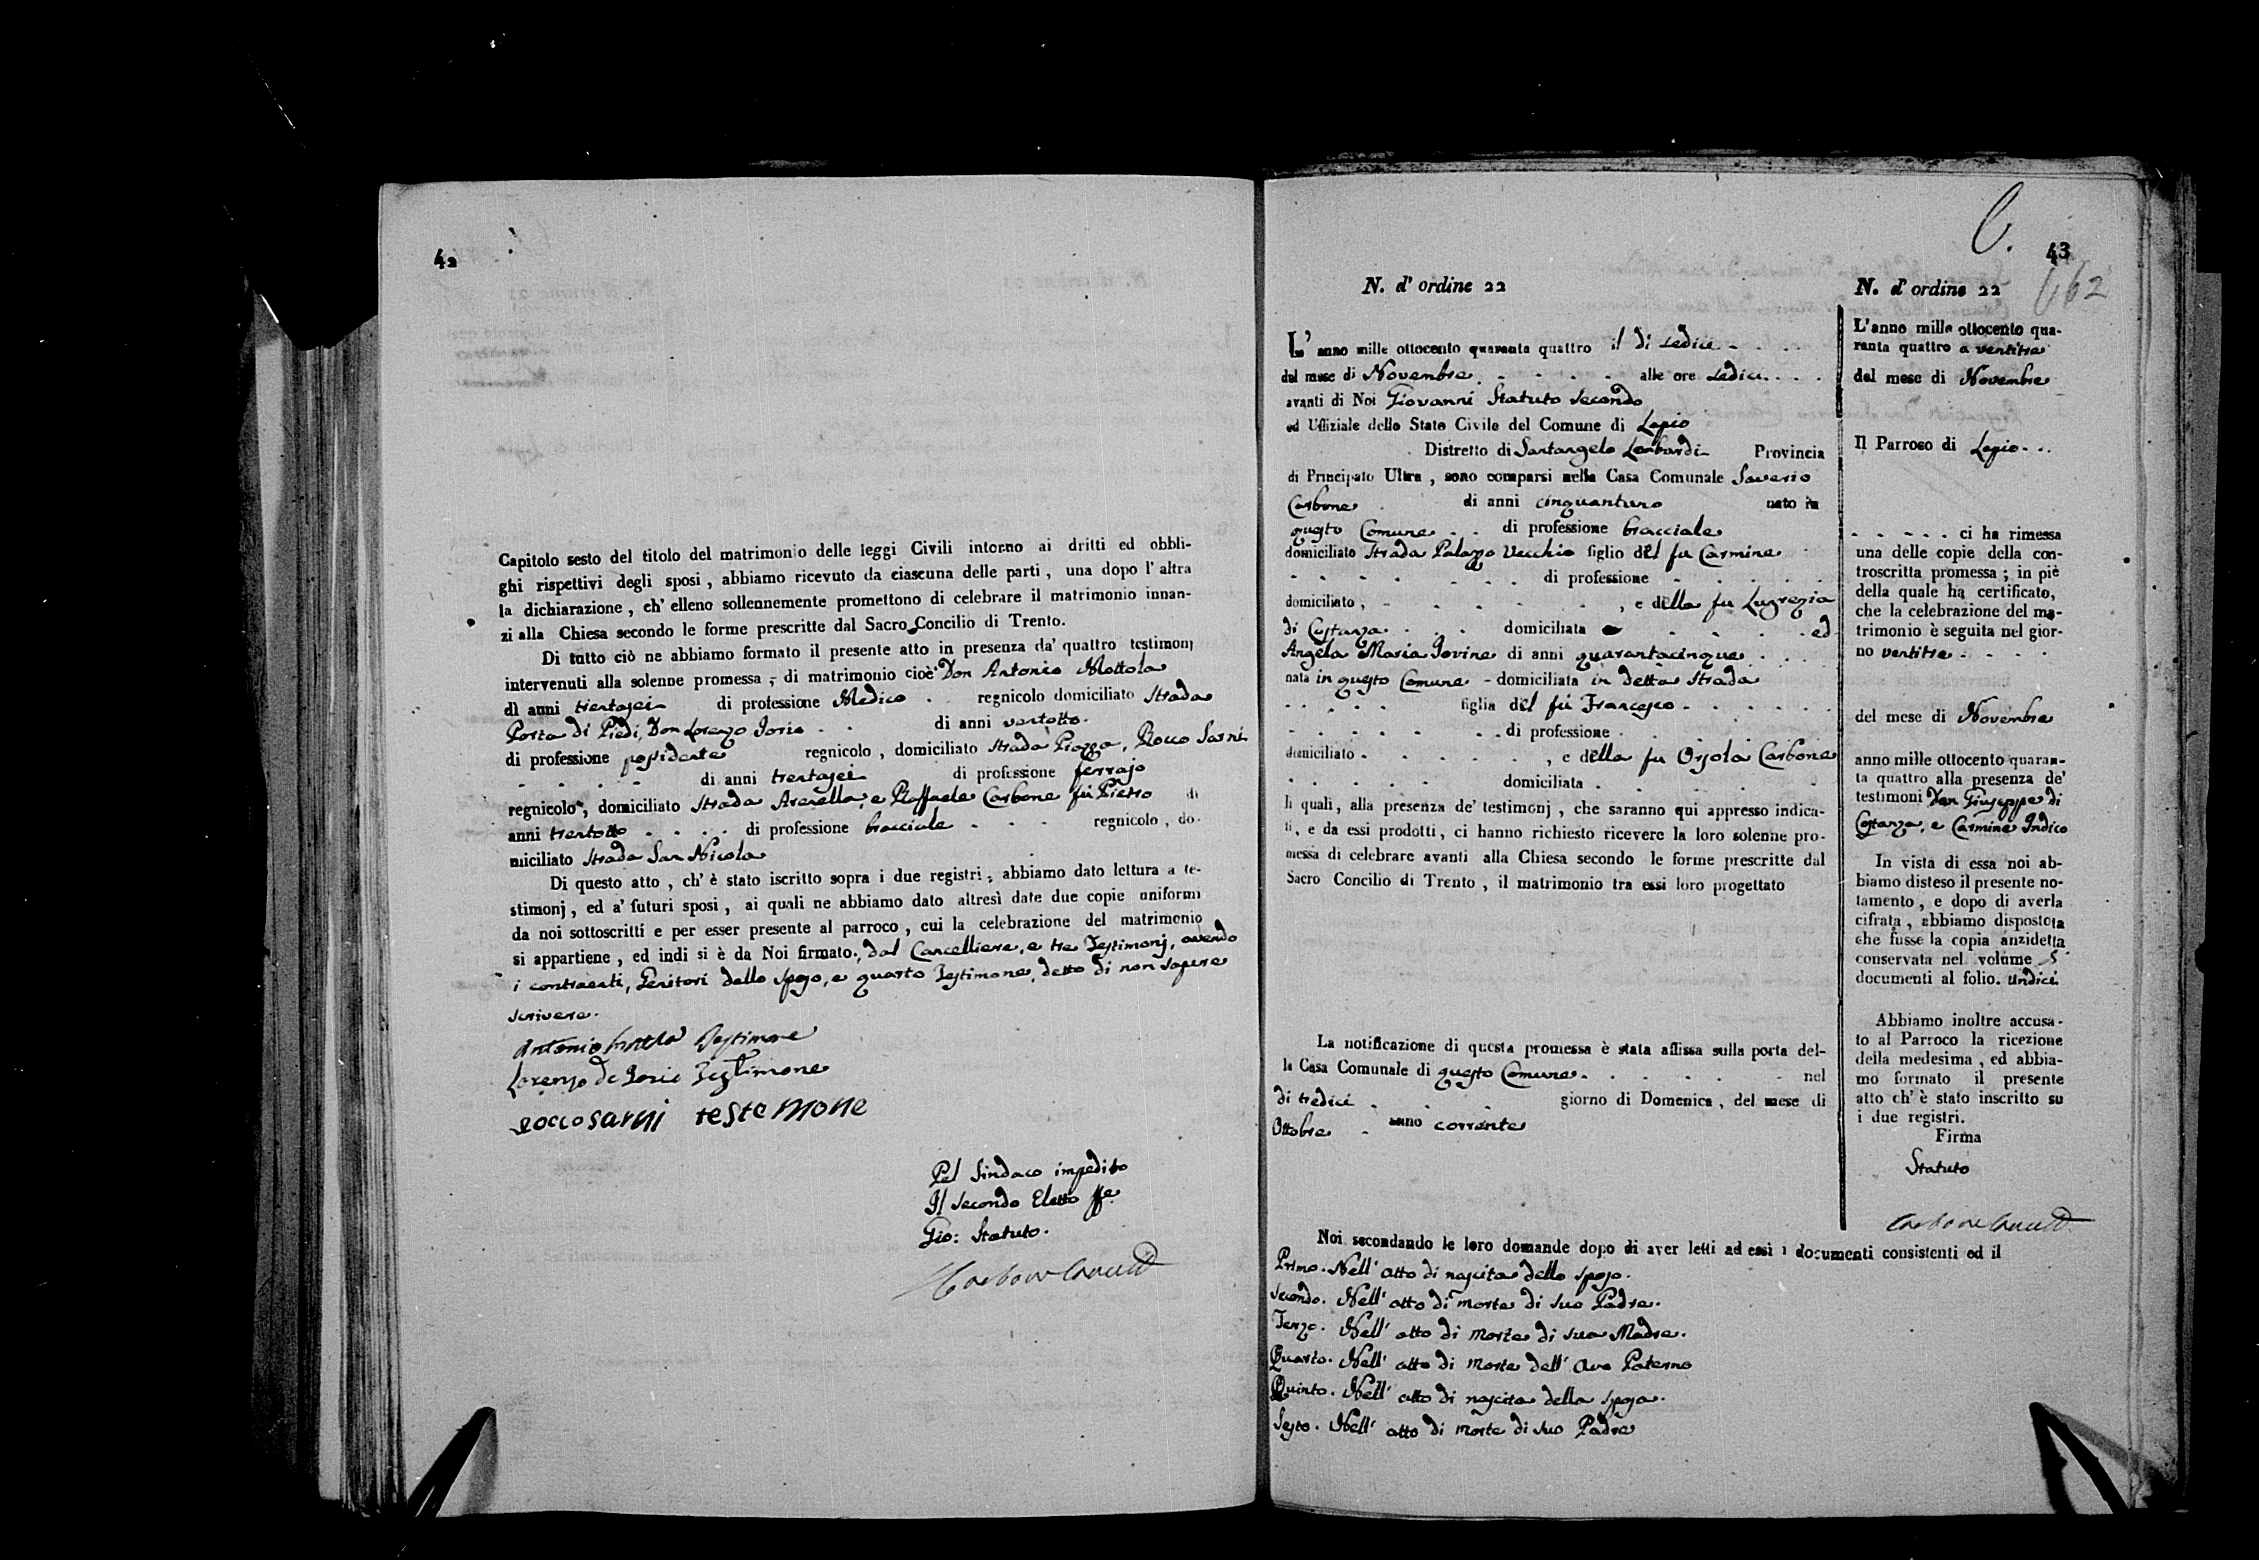 42
Capitolo sesto del titolo del matrimonio delle leggi Civili intorno ai dritti ed obbli-
ghi rispettivi degli sposi, abbiamo ricevuto da ciascuna delle parti, una dopo l'altra
la dichiarazione, ch'elleno sollennemente promettono di celebrare il matrimonio innan-
zi alla Chiesa secondo le forme prescritte dal Sacro Concilio di Trento.
Di tutto ciò ne abbiamo formato il presente atto in presenza da' quattro testimonj
intervenuti alla solenne promessa di matrimonio cioè Don Antonio Mottola
di anni trentasei di professione Medico regnicolo domiciliato Strada
Porta di Piedi, Don Lorenzo Iorio di anni ventotto
di professione possidente regnicolo, domiciliato Strada Piazza, Rocco Sarni
di anni trentasei di professione ferrajo
regnicolo, domiciliato Strada Arenella, e Raffaele Carbone fu Pietro di
anni trentotto di professione bracciale regnicolo, do-
miciliato Strada San Nicola
Di questo atto, ch'è stato iscritto sopra i due registri, abbiamo dato lettura a te-
stimonj, ed a' futuri sposi, ai quali ne abbiamo dato altresì date due copie uniformi
da noi sottoscritti e per esser presente al parroco, cui la celebrazione del matrimonio
si appartiene, ed indi si è da Noi firmato, dal Cancelliere, e tre Testimonj, avendo
i contraenti, Genitori dello sposo, e quarto Testimone, detto di non sapere
scrivere.
Antonio Mottola Testimone
Lorenzo de Iorio Testimone
Rocco sarni testemone
Pel Sindaco impedito
Il secondo Eletto ff.
Gio: Statuto.
43
662
N. d'ordine 22
L'anno mille ottocento quaranta quattro il dì sedici
del mese di Novembre alle ore sedici
avanti di Noi Giovanni Statuto Secondo
ed Uffiziale dello Stato Civile del Comune di Lapio
Distretto di Santangelo Lombardi Provincia
di Principato Ultra, sono comparsi nella Casa Comunale Saverio
Carbone di anni cinquantuno nato in
questo Comune di professione bracciale
domiciliato Strada Palazzo Vecchio figlio del fu Carmine
di professione
domiciliato, e della fu Lugrezia
di Costanza domiciliata ed
Angela Maria Iovine di anni quarantacinque
nata in questo Comune domiciliata in detta Strada
figlia del fu Francesco
di professione
domiciliato, e della fu Orsola Carbone
domiciliata
li quali, alla presenza de' testimonj, che saranno qui appresso indica-
ti, e da essi prodotti, ci hanno richiesto ricevere la loro solenne pro-
messa di celebrare avanti alla Chiesa secondo le forme prescritte dal
Sacro Concilio di Trento, il matrimonio tra essi loro progettato
La notificazione di questa promessa è stata affissa sulla porta del-
la Casa Comunale di questo Comune nel
dì tredici giorno di Domenica, del mese di
Ottobre anno corrente
N. d'ordine 22
L'anno mille ottocento qua-
ranta quattro a ventitre
del mese di Novembre
Il Parroco di Lapio
ci ha rimessa
una delle copie della con-
troscritta promessa; in piè
della quale ha certificato,
che la celebrazione del ma-
trimonio è seguita nel gior-
no ventitre
del mese di Novembre
anno mille ottocento quaran-
ta quattro alla presenza de'
testimoni Don Giuseppe di
Costanza, e Carmine Indico
In vista di essa noi ab-
biamo disteso il presente no-
tamento, e dopo di averla
cifrata, abbiamo disposto
che fusse la copia anzidetta
conservata nel volume 5
documenti al folio. undici.
Abbiamo inoltre accusa-
to al Parroco la ricezione
della medesima, ed abbia-
mo formato il presente
atto ch'è stato inscritto su
i due registri.
Firma
Statuto
Noi secondando le loro domande dopo di aver letti ad essi i documenti consistenti ed il
Primo. Nell'atto di nascita dello sposo.
Secondo. Nell'atto di morte di suo Padre.
Terzo. Nell'atto di morte di sua Madre.
Quarto. Nell'atto di morte dell'Avo Paterno
Quinto. Nell'atto di nascita della sposa.
Sesto. Nell'atto di morte di suo Padre